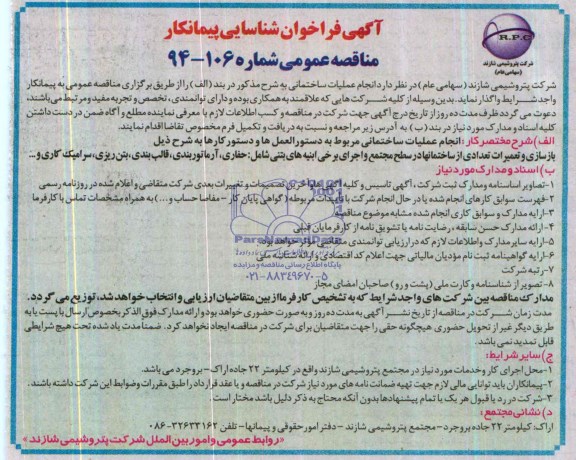 آگهی فراخوان شناسایی پیمانکار
مناقصه عمومی شماره ۱۰۶-۹۴
R.P.C
شرکت پتروشیمی شازند
(سهامی عام)
شرکت پتروشیمی شازند (سهامی عام) در نظر دارد انجام عملیات ساختمانی به شرح مذکور در بند (الف) را از طریق برگزاری مناقصه عمومی به پیمانکار
واجد شرایط واگذار نماید. بدین وسیله از کلیه شرکت هایی که علاقمند به همکاری بوده و دارای توانمندی، تخصص و تجربه مفید و مرتبط می باشند،
دعوت می گردد ظرف مدت ده روز از تاریخ درج آگهی جهت شرکت در مناقصه و کسب اطلاعات لازم با معرفی نماینده مطلع و آگاه ضمن در دست داشتن
کلیه اسناد و مدارک مورد نیاز در بند (ب) به آدرس زیر مراجعه و نسبت به دریافت و تکمیل فرم مخصوص تقاضا اقدام نمایند.
الف) شرح مختصر کار: انجام عملیات ساختمانی مربوط به دستورالعمل ها و دستور کارها به شرح ذیل
بازسازی و تعمیرات تعدادی از ساختمانها در سطح مجتمع و اجرای برخی ابنیه های بتنی شامل: حفاری، آرماتوربندی، قالب بندی، بتن ریزی، سرامیک کاری و...
ب) اسناد و مدارک مورد نیاز
۱-تصاویر اساسنامه و مدارک ثبت شرکت، آگهی تاسیس و کلیه آگهی ها و آخرین تصمیمات و تغییرات بعدی شرکت متقاضی و اعلام شده در روزنامه رسمی
۲-فهرست سوابق کارهای انجام شده یا در حال انجام شرکت با تاییدات مربوطه (گواهی پایان کار - مفاصا حساب و...) به همراه مشخصات تماس با کارفرما
۳-ارایه مدارک و سوابق کاری انجام شده مشابه موضوع مناقصه
۴-ارائه مدارک حسن سابقه، رضایت نامه یا تشویق نامه از کارفرمایان قبلی
۵-ارایه سایر مدارک و اطلاعات لازم که در ارزیابی توانمندی متقاضی موثر خواهد بود.
۶-ارایه گواهینامه ثبت نام مؤدیان مالیاتی جهت اعلام کد اقتصادی و ارائه شناسه ملی
۷-رتبه شرکت
۸-تصویر از شناسنامه و کارت ملی (پشت و رو) صاحبان امضای مجاز
ParsNamadData
پایگاه اطلاع رسانی مناقصه و مزایده
۰۲۱-۸۸۳۴۹۶۷۰-۵
مدارک مناقصه بین شرکت های واجد شرایط که به تشخیص کارفرما از بین متقاضیان ارزیابی و انتخاب خواهد شد، توزیع می گردد.
مدت زمان شرکت در مناقصه از تاریخ نشر آگهی به مدت ده روز و به صورت حضوری خواهد بود و ارائه مدارک فوق الذکر بخصوص ارسال با پست یا به
طریق دیگر غیر از تحویل حضوری هیچگونه حقی را جهت متقاضیان برای شرکت در مناقصه ایجاد نخواهد کرد. ضمنا مدت یاد شده تحت هیچ شرایطی
قابل تمدید نمی باشد.
ج) سایر شرایط:
۱-محل اجرای کار و خدمات مورد نیاز در مجتمع پتروشیمی شازند واقع در کیلومتر ۲۲ جاده اراک-بروجرد می باشد.
۲-پیمانکاران باید توانایی مالی لازم جهت تهیه ضمانت نامه های مورد نیاز شرکت در مناقصه و یا عقد قرارداد را طبق مقررات و ضوابط این شرکت داشته باشند.
۳-شرکت در رد یا قبول هر یک یا تمام پیشنهادها بدون آنکه محتاج به ذکر دلیل باشد مختار است.
د) نشانی مجتمع:
اراک: کیلومتر ۲۲ جاده بروجرد-مجتمع پتروشیمی شازند - دفتر امور حقوقی و پیمانها - تلفن ۳۲۶۳۳۱۶۲-۰۸۶
«روابط عمومی و امور بین الملل شرکت پتروشیمی شازند»